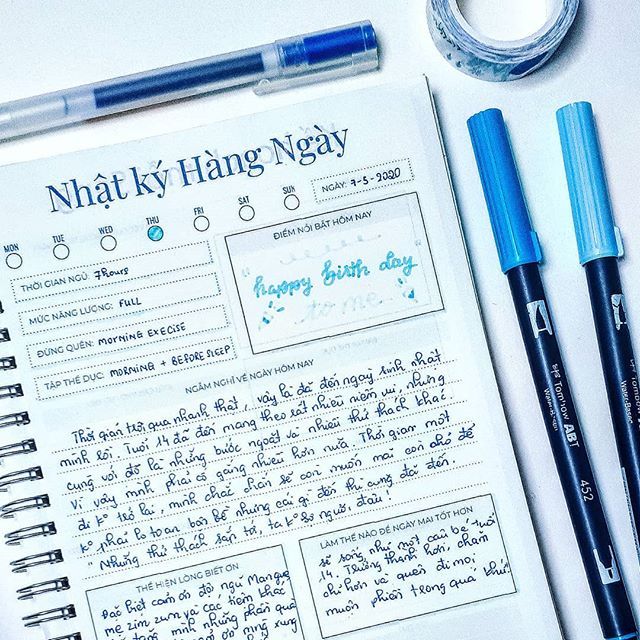 Nhật ký Hàng Ngày
NGÀY: 7-5-2020
MON TUE WED THU FRI SAT SUN
THỜI GIAN NGỦ: 7hours
MỨC NĂNG LƯỢNG: FULL
ĐỪNG QUÊN: MORNING EXECISE
TẬP THỂ DỤC: MORNING + BEFORE SLEEP
ĐIỂM NỔI BẬT HÔM NAY
happy birth day
to me
NGẪM NGHĨ VỀ NGÀY HÔM NAY
Thời gian trôi qua nhanh thật, vậy là đã đến ngày sinh nhật
mình rồi. Tuổi 14 đã đến mang theo rất nhiều niềm vui, nhưng
cùng với đó là những bước ngoặt và nhiều thử thách khác.
Vì vậy mình phải cố gắng nhiều hơn nữa. Thời gian một
đi ko trở lại, mình chắc chắn sẽ còn muôn mai còn chờ để
ko phải lo toan bởi bề nhưng cái gì đến thì cũng đã đến.
"Những thử thách sắp tới, ta ko sợ ngươi, đâu!
THỂ HIỆN LÒNG BIẾT ƠN
Đặc biệt cảm ơn đội ngũ Mangue
mẹ zim zum và các tiệm khác
LÀM THẾ NÀO ĐỂ NGÀY MAI TỐT HƠN
sẽ sống như một cậu bé tuổi
14. Trưởng thành hơn, chăm
chỉ hơn và quên đi mọi
muộn phiền trong quá khứ
Tombow ABT
452